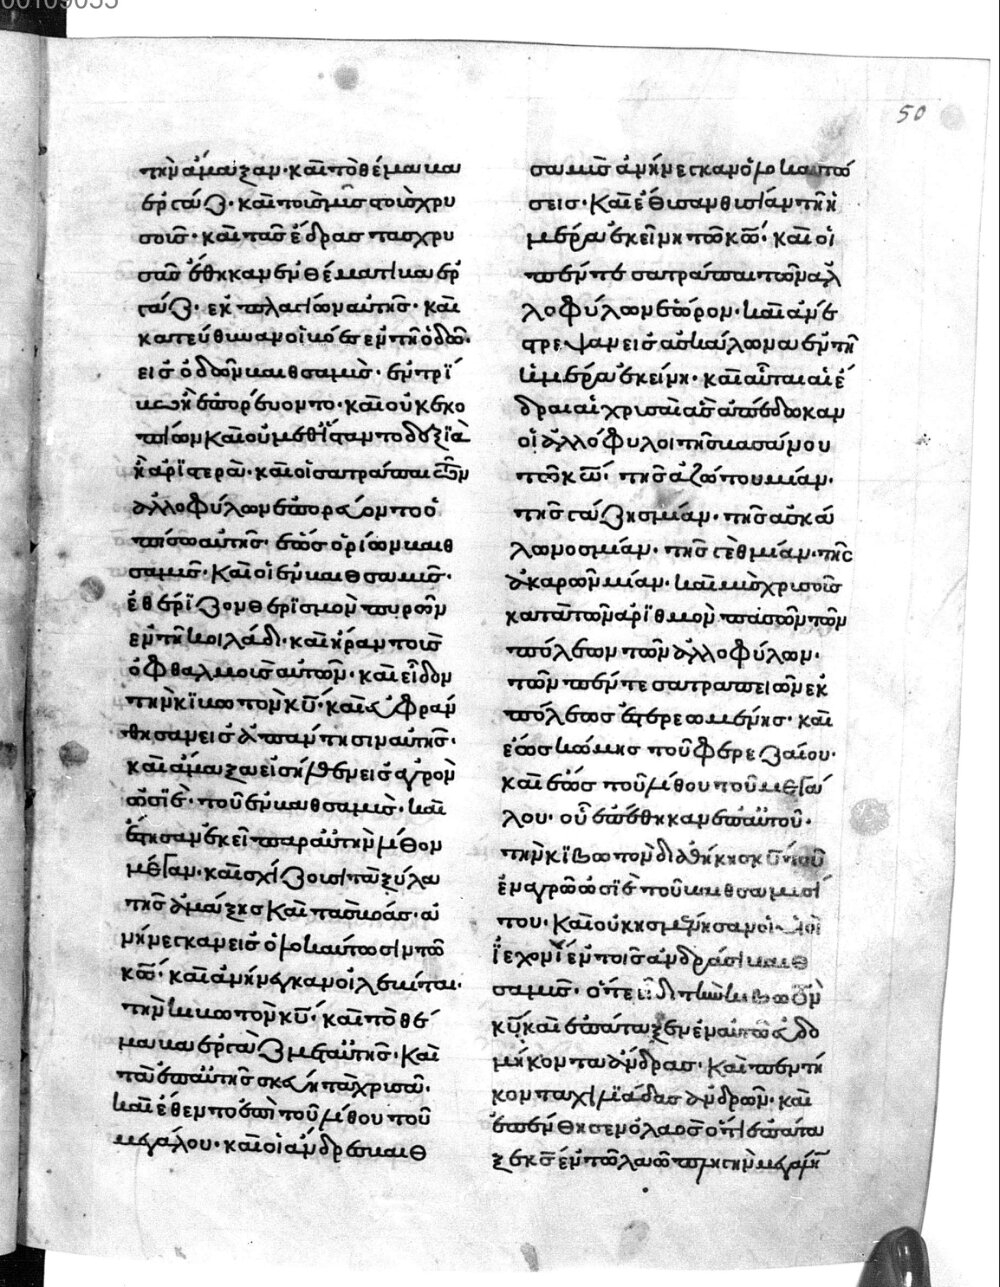 τὴν ἅμαξαν· καὶ τὸ θέμα κα
ἐργάζ· καὶ ποιὸ μῦς τοιὸ χρυ
σοῖς· καὶ τὰς ἕδρας τὰς χρυ
σᾶς ἔθηκαν ἐν θέματι
ἐκ πλαγίων αὐτῆς· καὶ
κατεύθυναν οἱ βόες ἐν τῇ ὁδῷ·
εἰς ὁδὸν βαιθσαμὺς· ἐν τρί
βῳ ἐπορεύοντο· καὶ οὐκ ἐκο
πίων καὶ οὐ μεθίσταντο δεξιὰ
ἢ ἀριστερὰ· καὶ οἱ σατράπαι τῶν
ἀλλοφύλων ἐπορεύοντο ὀ
πίσω αὐτῆς· ἕως ὁρίων βαιθ
σαμὺς· Καὶ οἱ ἐν βαιθσαμὺς·
ἐθέριζον θερισμὸν πυρῶν
ἐν τῇ κοιλάδι· καὶ ἦραν τοὺς
ὀφθαλμοὺς αὐτῶν· καὶ εἶδον
τὴν κιβωτὸν κυ· καὶ εὐφράν
θησαν εἰς ἀπάντησιν αὐτῆς·
καὶ ἅμαξα εἰσῆλθεν εἰς ἀγρὸν
ὡσῆε· τοῦ ἐν βαιθσαμὺς· καὶ
ἔστησαν ἐκεῖ παρ αὐτὴν λίθον
μέγαν· καὶ σχίζουσι τὰ ξύλα
τῆς ἁμάξης Καὶ τὰς βόας· ἀ
νήνεγκαν εἰς ὁλοκαύτωσιν τῷ
κω· καὶ ἀνήνεγκαν οἱ λευῖται·
τὴν κιβωτὸν κυ· καὶ τὸ θέ
μα μετ αὐτῆς· Καὶ
τὰ ἐπ αὐτῆς σκεύη τὰ χρυσᾶ·
καὶ ἔθεντο ἐπὶ τοῦ λίθου τοῦ
μεγάλου· καὶ οἱ ἄνδρες βαιθ
σαμὺς ἀνήνεγκαν ὁλοκαυτώ
σεις· Καὶ ἔθυσαν θυσίαν τῇ
ἡμέρᾳ ἐκείνῃ τῷ κω· καὶ οἱ
πέντε σατράπαι τῶν ἀλ
λοφύλων ἑώρων· καὶ ἀνέ
στρεψαν εἰς ἀσκάλωνα ἐν τῇ
ἡμέρᾳ ἐκείνῃ· καὶ αὗται αἱ ἕ
δραι αἱ χρυσαῖ ἃς ἀπέδωκαν
οἱ ἀλλόφυλοι τῆς βασάνου
τῷ κω· τῆς ἀζώτου μίαν·
τῆς γάζης μίαν· τῆς ἀσκά
λωνος μίαν· τῆς γὲθ μίαν· τῆς
ἀκαρὼν μίαν· καὶ μῦς χρυσοῖς
κατὰ τὸν ἀριθμὸν πασῶν τῶν
πόλεων τῶν ἀλλοφύλων·
τῶν πέντε σατραπειῶν ἐκ
πόλεως ἐστερεωμένης· καὶ
ἕως κώμης τοῦ φερεζαίου·
καὶ ἕως τοῦ λίθου τοῦ μεγά
λου· οὗ ἐπέθηκαν ἐπ αὐτοῦ·
τὴν κιβωτὸν διαθήκης κυ
ἐν ἀγρῷ ὡσῆε τοῦ βαιθσαμυσί
του· Καὶ οὐκ ἠσμένησαν οἱ υἱοὶ
ἰεχονίου ἐν τοῖς ἀνδράσι βαιθ
σαμὺς· ὅτι εἶδον κιβωτὸν
κυ καὶ ἐπάταξεν ἐν αὐτοῖς ἑβδο
μήκοντα ἄνδρας· Καὶ πεντή
κοντα χιλιάδας ἀνδρῶν· καὶ
ἐπένθησεν ὁ λαὸς ὅτι ἐπάτα
ξε κς ἐν τῷ λαῷ πληγὴν μεγάλη
50